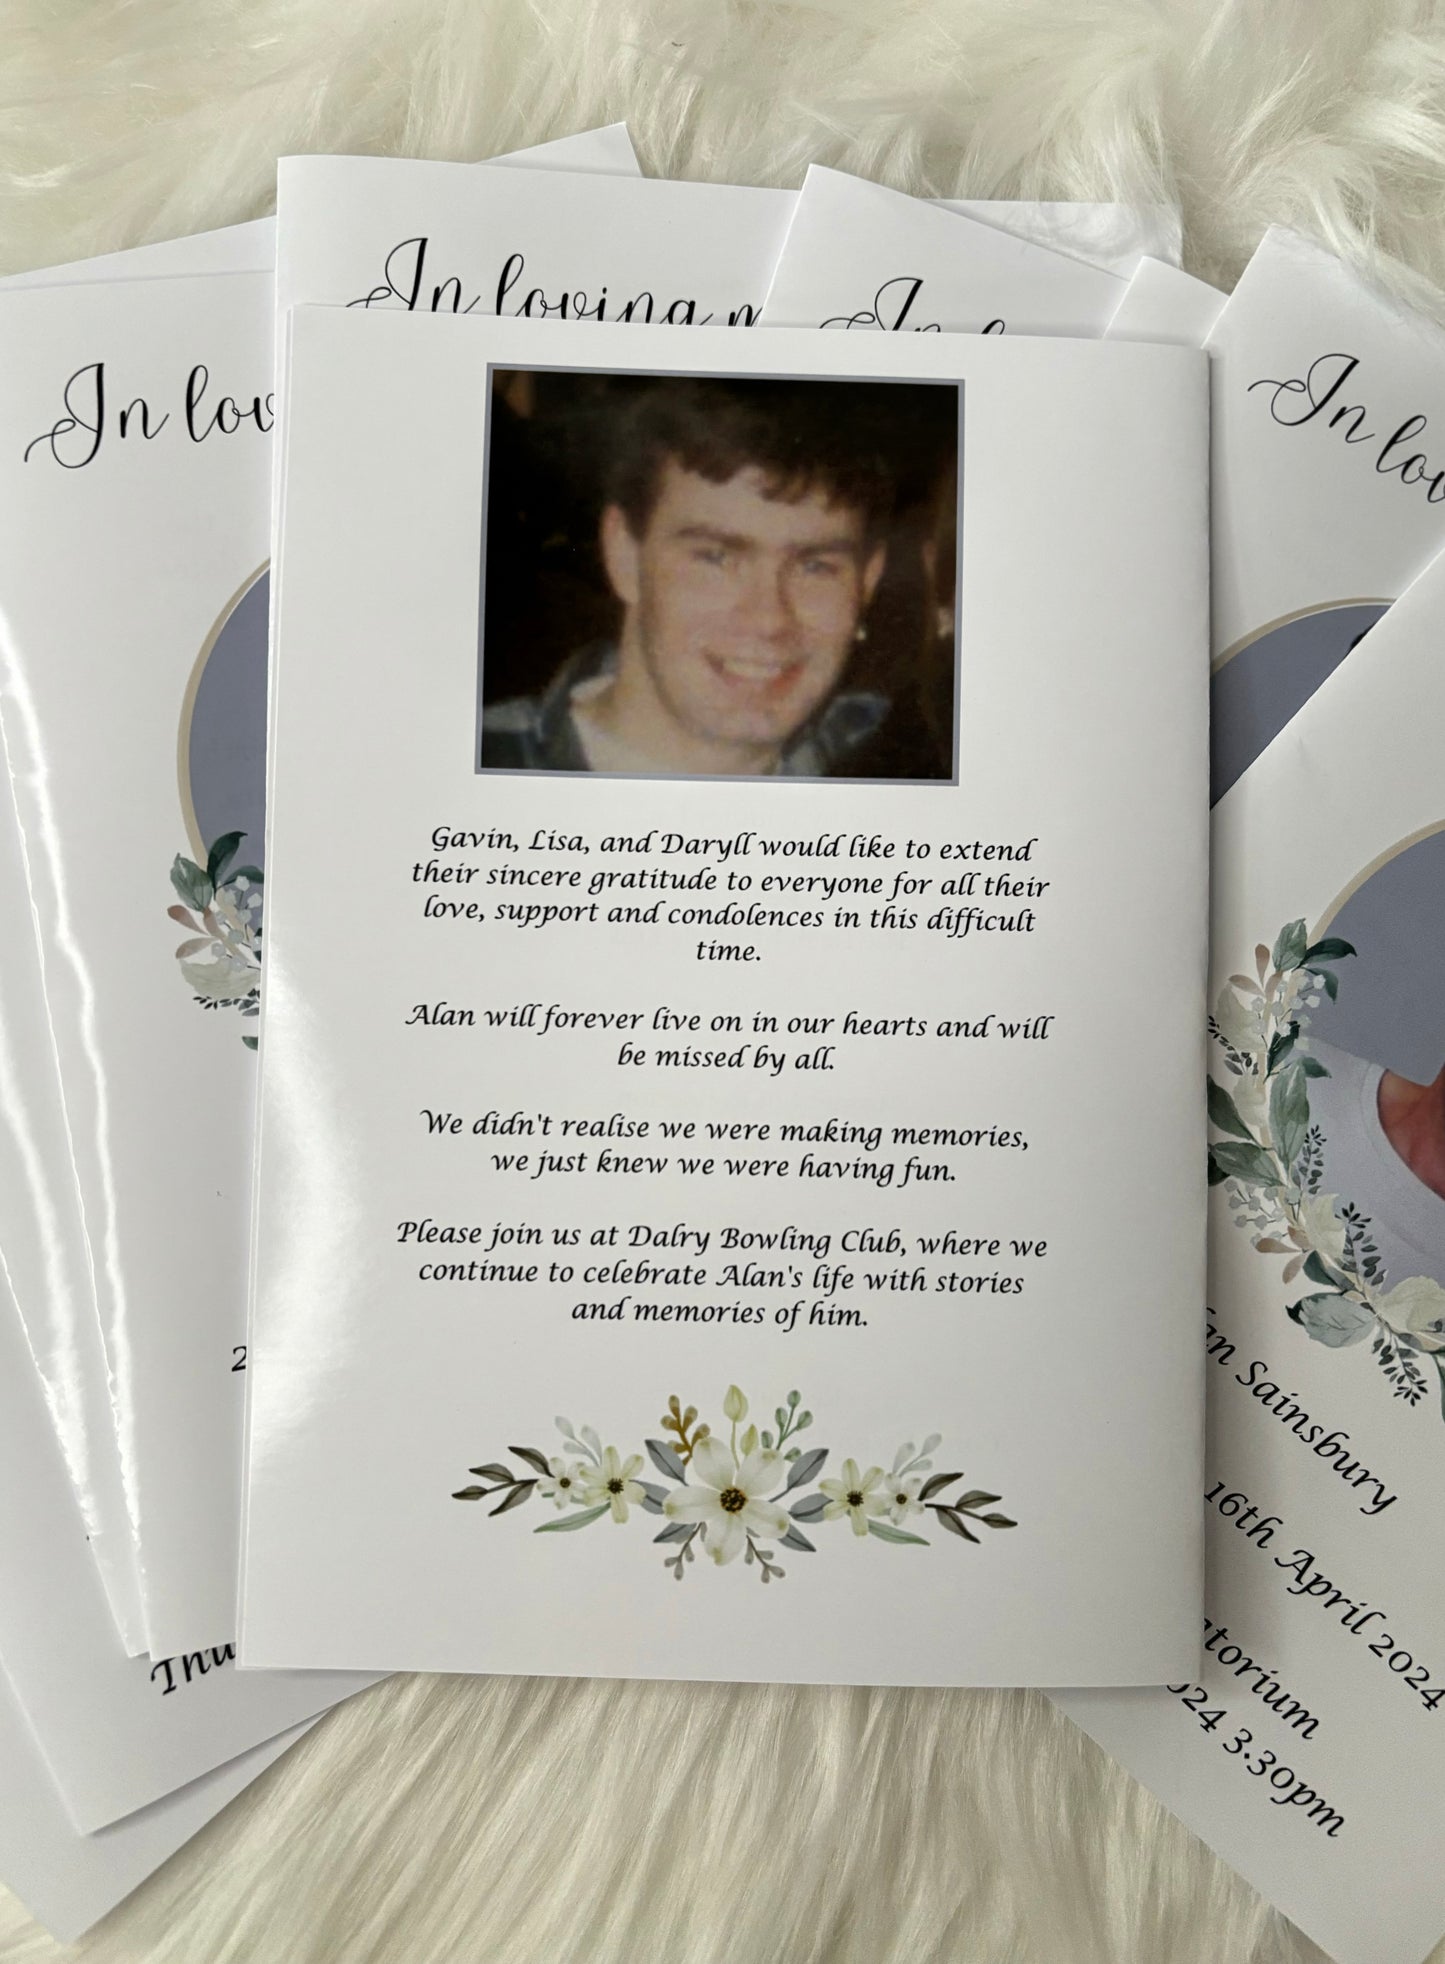 In loving
In
In
In
Gavin, Lisa, and Daryll would like to extend
their sincere gratitude to everyone for all their
love, support and condolences in this difficult
time.
Alan will forever live on in our hearts and will
be missed by all.
We didn't realise we were making memories,
we just knew we were having fun.
Please join us at Dalry Bowling Club, where we
continue to celebrate Alan's life with stories
and memories of him.
Sainsbury
16th April 2024
3.30pm